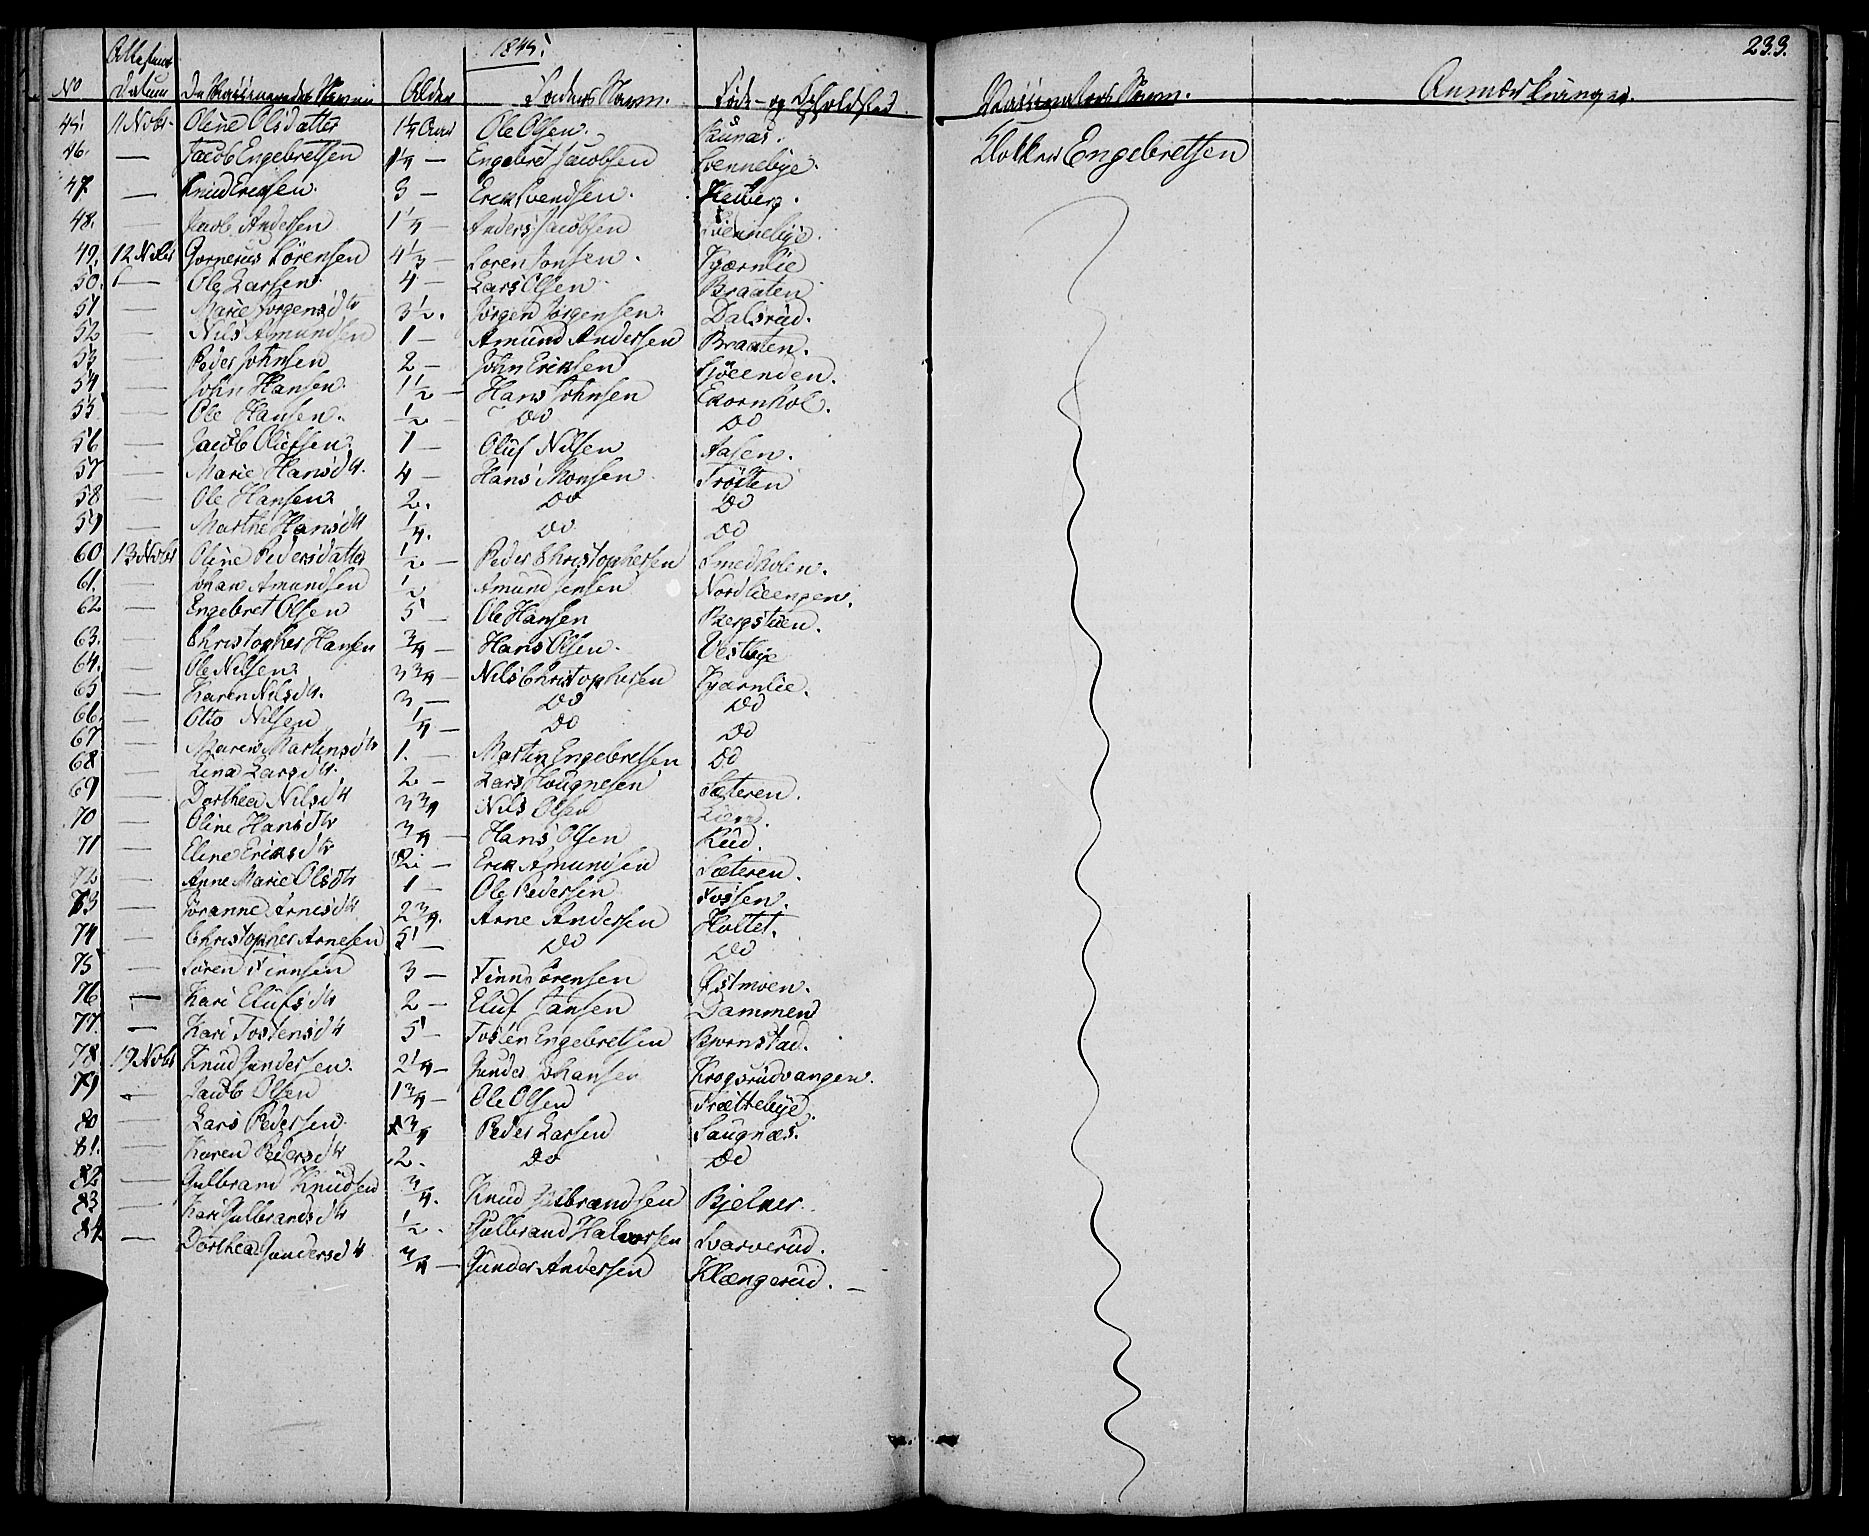 1845.
233.
No Attestens Datum De Vaccineredes Navne Alder Faders Navn. Føde- og Opholdsted. Vaccinateurs Navn. Anmærkninger.
45. 11 Novbr. Oline Olsdatter 1 1/4 Aar Ole Olsen. Runas. Klokker Engebretsen
46. — Jacob Engebretsen 1 1/4 — Engebret Jacobsen Svennebye.
47. — Knud Ericsen. 3 — Eric Svendsen. Heiberg.
48. — Jacob Andersen 1 1/4 — Anders Jacobsen Svennebye.
49. 12 Novbr Gornerius Sörensen 4 1/3 — Sören Jonsen. Kjærnlie
50. — Ole Larsen. 4 — Lars Olsen. Braaten
51 — Marie Jörgensdtr 3 1/2. Jörgen Jörgensen. Dalsrud.
52 — Nils Amundsen 1 — Amund Andersen Braaten.
53 — Peder Johnsen 2 — John Ericsen Sjöenden.
54 — John Hansen 1 1/2 — Hans Johnsen Ekornhol.
55 — Ole Hansen. 1/2 — Do Do
56 — Jacob Olufsen. 1 — Oluf Nilsen Aasen.
57 — Marie Hansdtr. 4 — Hans Monsen Tröften
58 — Ole Hansen 2. Do Do
59 — Marthe Hansdtr 1/4. Do Do
60 13 Novbr Oline Pedersdatter 1/2 — Peder Christophersen Smedholen.
61. — Johan Amundsen 1/2 Amund Jensen Nordlieengen.
62 — Engebret Olsen 5 — Ole Hansen Bergstuen.
63. — Christopher Hansen 3/4 — Hans Olsen. Vestbye
64. — Ole Nilsen 3 3/4 — Nils Christophersen Kjærnlie.
65 — Karen Nilsdtr. 3 — Do Do
66. — Otto Nilsen 1/4 — Do Do
67 — Maren Martinsdtr 1. — Martin Engebretsen Do
68 — Lina Larsdtr. 2 — Lars Hougnesen Sæteren.
69 — Dorthea Nilsdtr 3 3/4 Nils Olsen
70 — Oline Hansdtr 3/4 — Hans Olsen Rud.
71 — Eline Ericsdtr 2 — Eric Amundsen Sæteren.
72 — Anne Marie Olsdtr 1 — Ole Pedersen Fossen.
73 — Jöranne Arnesdtr 2 3/4. Arne Andersen Holtet.
74 — Christopher Arnesen 5 — Do Do
75 — Sören Finnsen 3 — Finn Sörensen Østmoen.
76 — Kari Elufsdtr 2 — Eluf Jansen Dammen
77 — Kari Tostensdtr 5 — Tosten Engebretsen Bjørnstad.
78. 19 Novbr Knud Gundersen. 2 1/4 — Gunder Johansen Krogsrudvangen.
79 — Jacob Olsen 1 3/4 — Ole Olsen Frættebye.
80 — Lars Pedersen 3/4 Peder Larsen Saugnæs.
81. — Karen Pedersdtr 2. Do Do
82 — Gulbrand Knudsen 3/4. Knud Gulbrandsen Bjelker.
83 — Kari Gulbrandsdtr 1/2. Gulbrand Halvorsen Svarverud.
84 — Dorthea Gundersdtr 3/4 — Gunder Andersen Klængerud. —